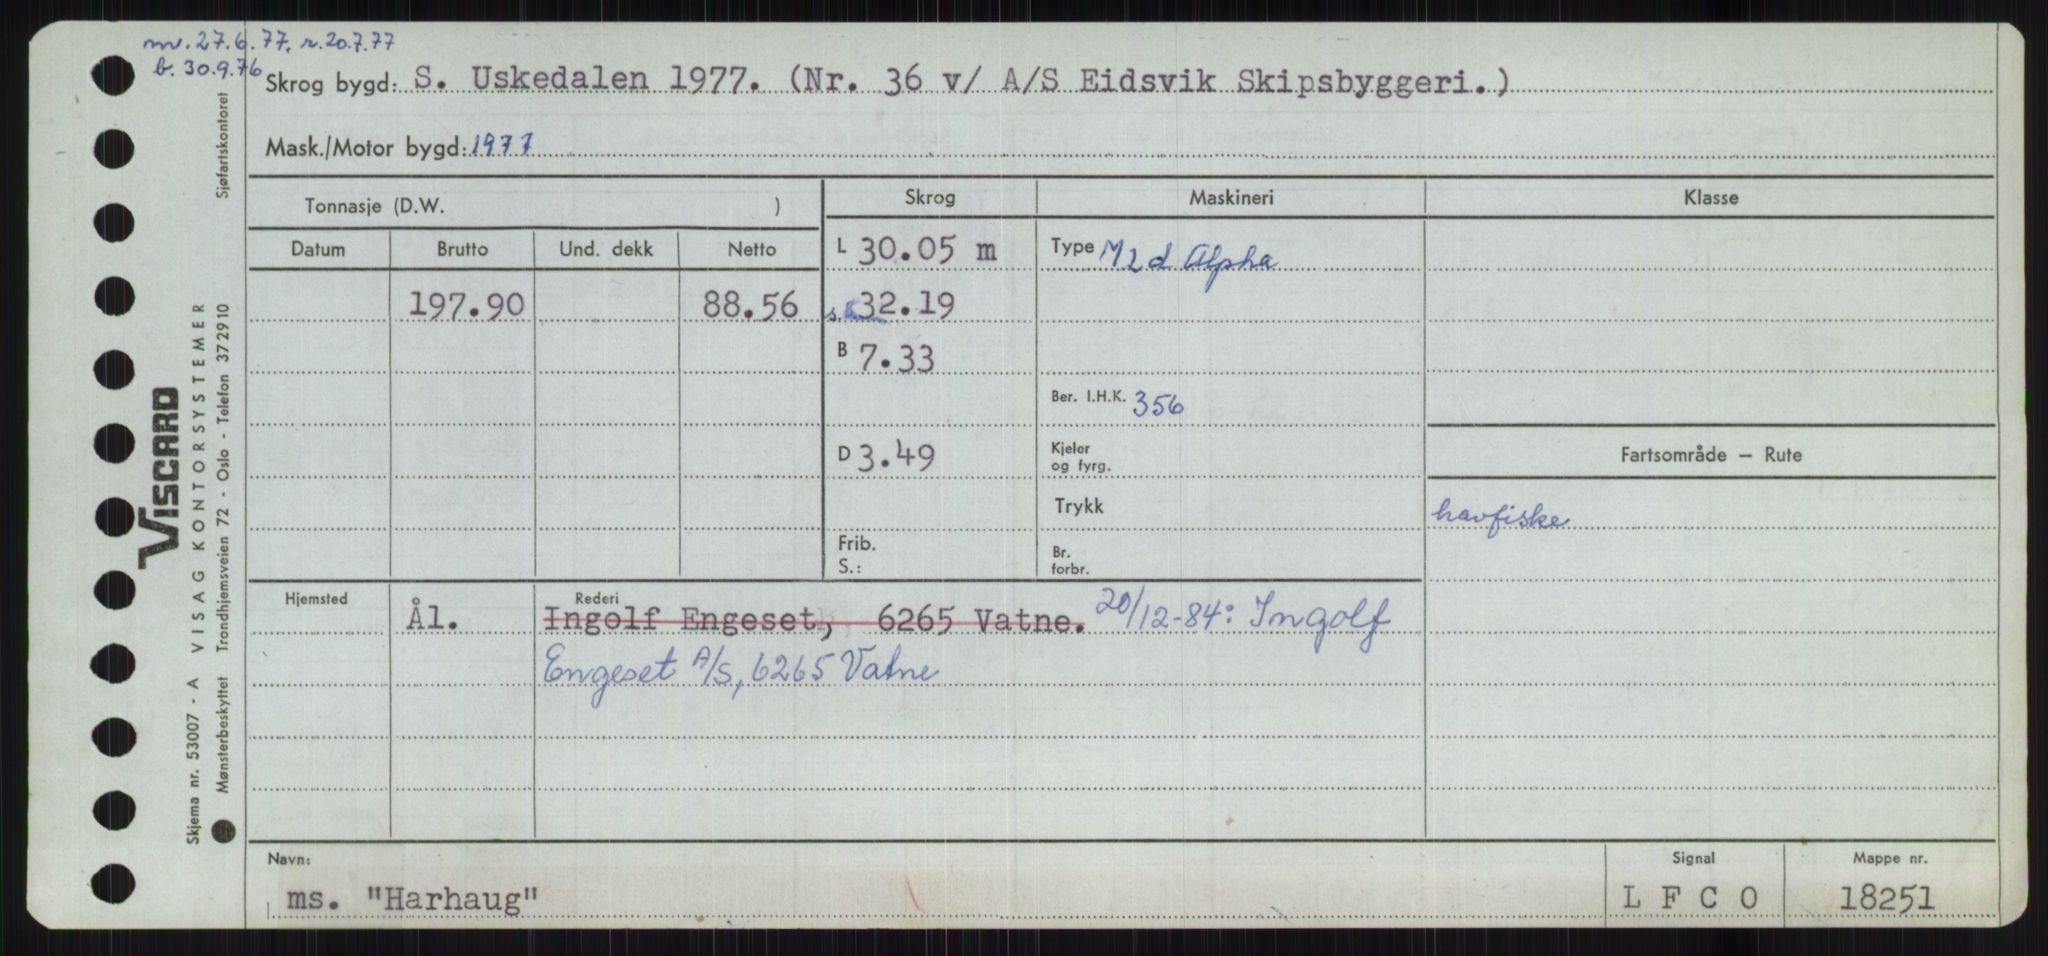 mv. 27.6.77. r. 20.7.77
b. 30.9.76
Skrog bygd: S. Uskedalen 1977. (Nr. 36 v/ A/S Eidsvik Skipsbyggeri.)
Mask./Motor bygd: 1977
Tonnasje (D.W. )
Skrog
Maskineri
Klasse
Datum Brutto Und. dekk Netto
L 30.05 m
Type M2d Alpha
197.90 88.56
32.19
B 7.33
Ber. I.H.K. 356
D 3.49
Kjeler
og fyrg.
Fartsområde — Rute
Trykk
havfiske
Frib.
S.:
Br.
forbr.
Hjemsted
Ål.
Rederi
Ingolf Engeset, 6265 Vatne. 20/12-84: Ingolf
Engeset A/S, 6265 Vatne
Navn:
ms. "Harhaug"
Signal
L F C O
Mappe nr.
18251
VISCARD
Skjema nr. 53007 - A VISAG KONTORSYSTEMER
Mønsterbeskyttet Trondhjemsveien 72 - Oslo - Telefon 372910
Sjøfartskontoret